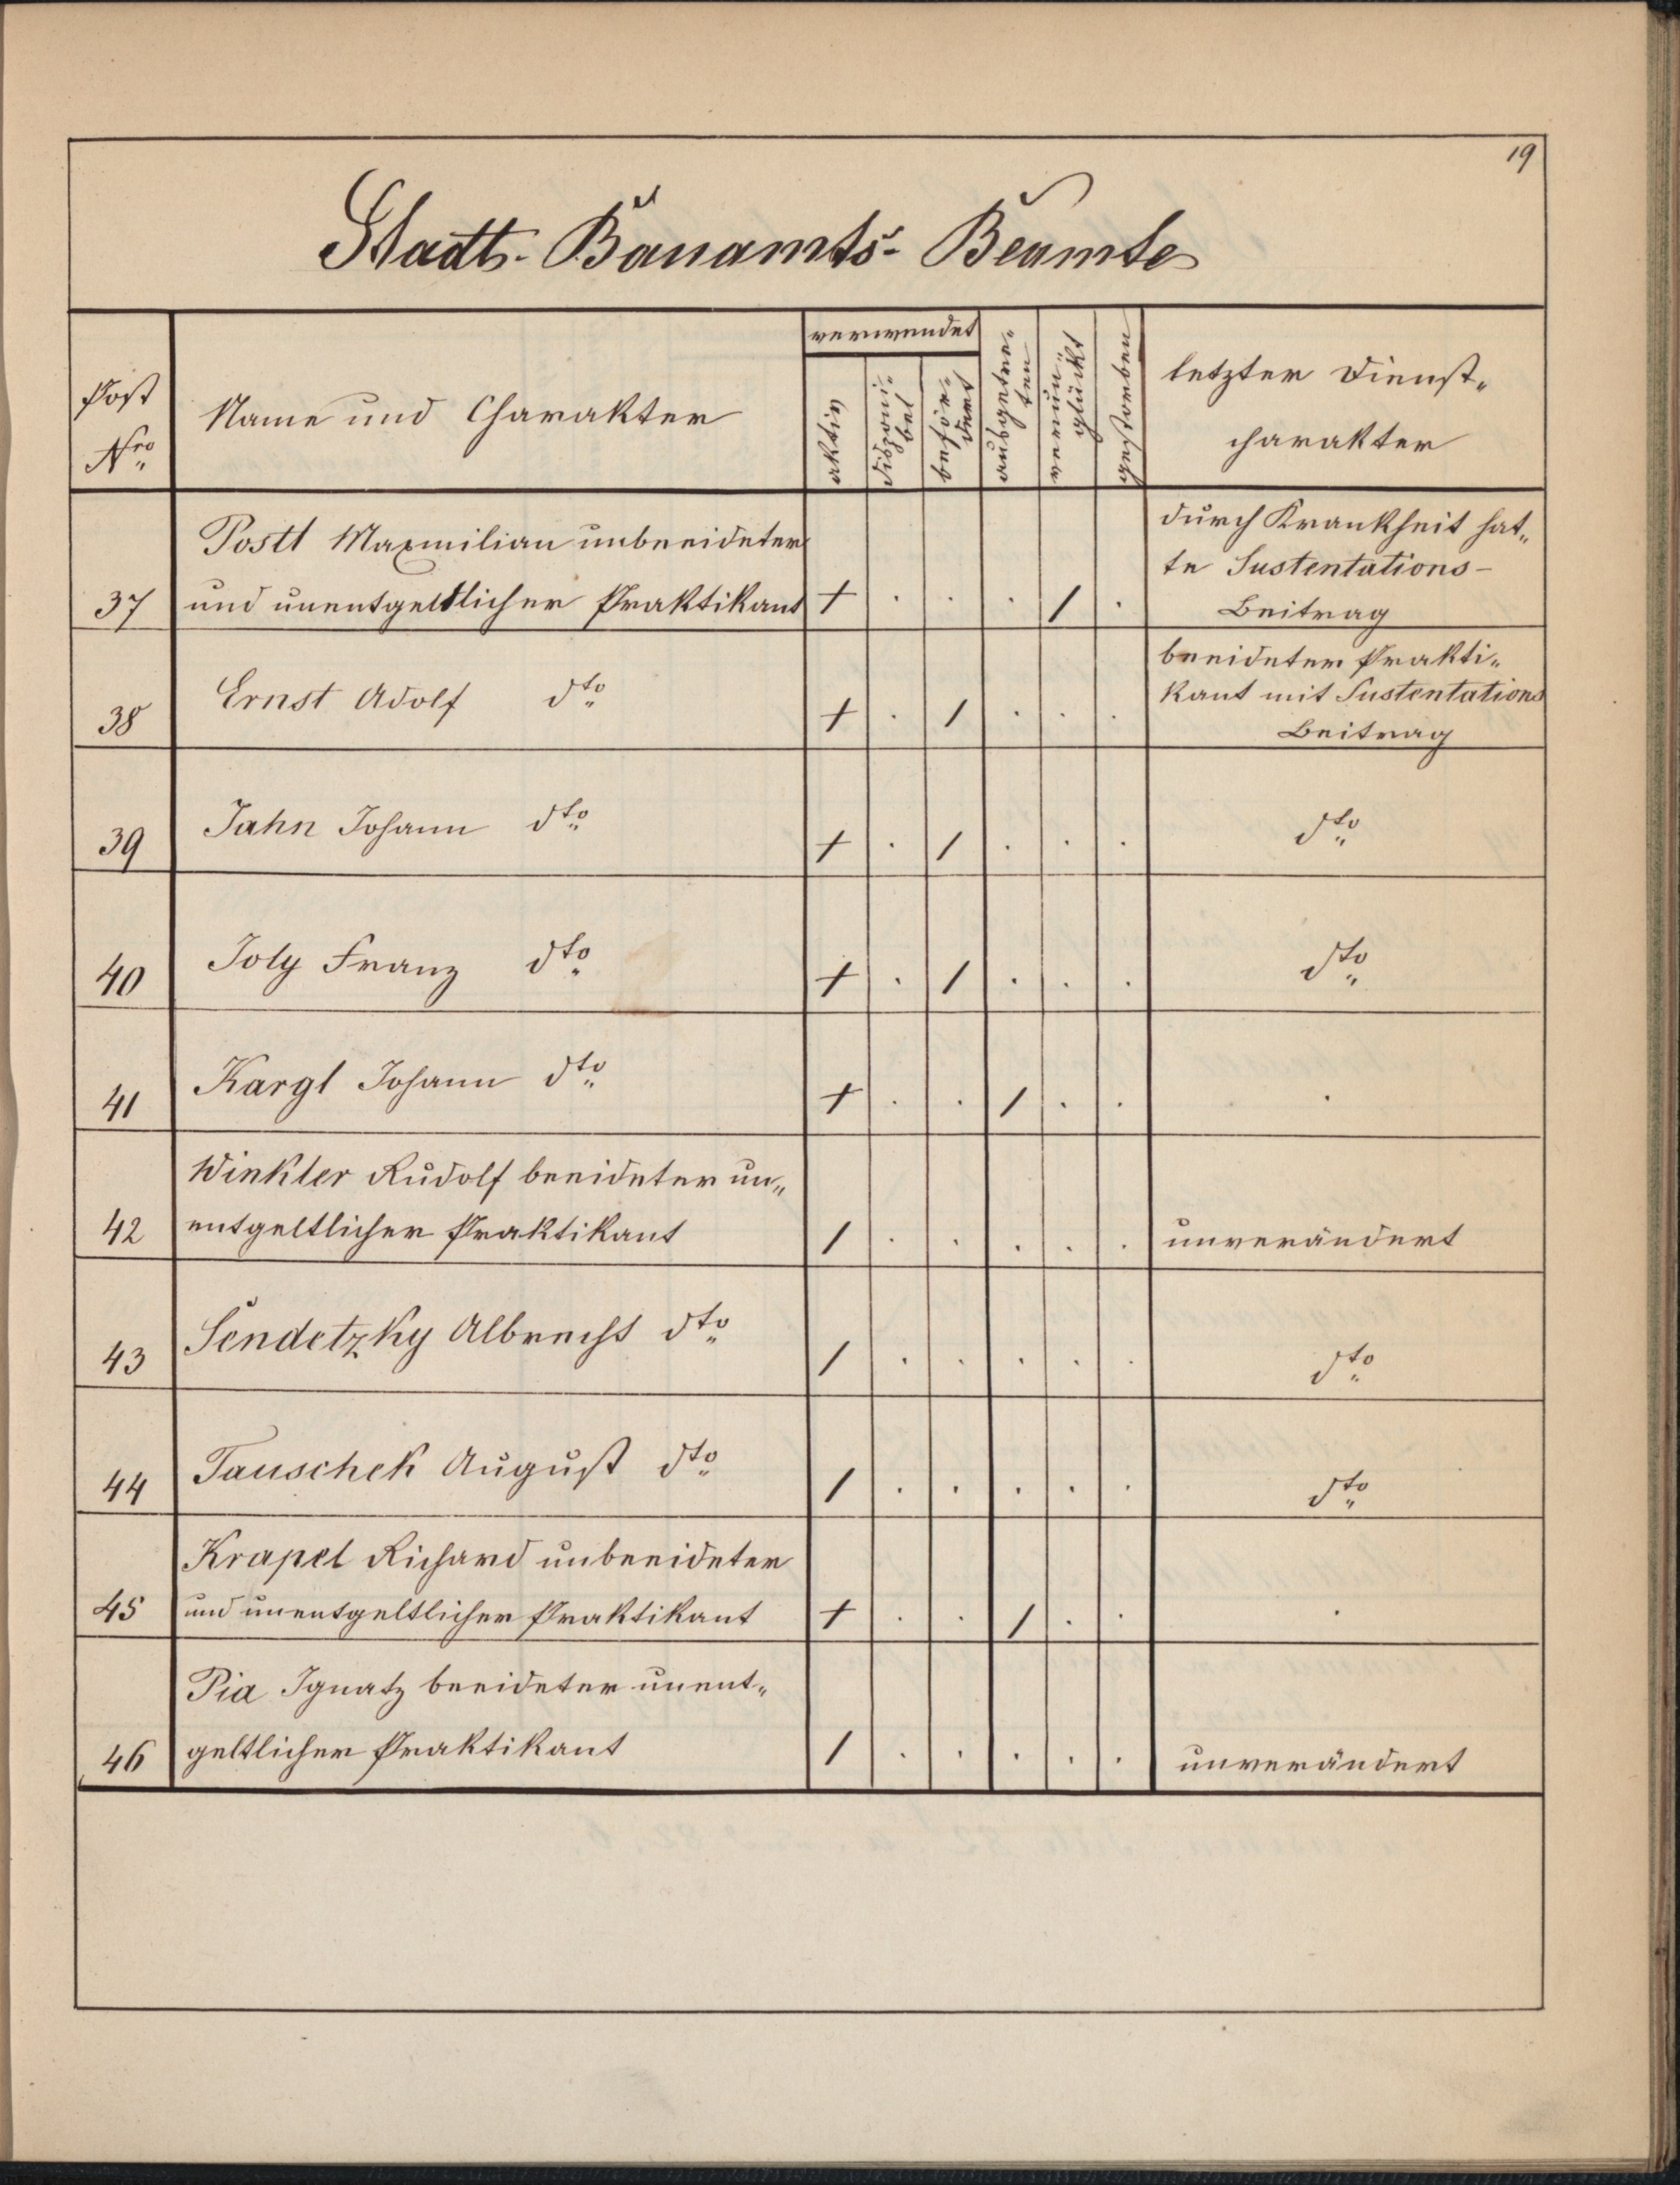 19
Stadt-Bauamts-Beamte
Post
Nro
Name und Charakter
verwendet
aktiv
disponi-
bel
beför-
dert
ausgetre-
ten
verun-
glückt
gestorben
letzter Dienst-
charakter
37
Postl Maxmilian unbeeideter
und unentgeltlicher Praktikant + . . . / .
durch Krankheit hat-
te Sustentations-
Beitrag
38 Ernst Adolf dto + . / . . .
beeideter Prakti-
kant mit Sustentations
Beitrag
39 Jahn Johann dto + . / . . . dto
40 Joly Franz dto + . / . . . dto
41 Kargl Johann dto + . . / . . .
Winkler Rudolf beeideter un-
42 entgeltlicher Praktikant / . . . . . unverändert
43 Sendetzky Albrecht dto / . . . . . dto
44 Tauschek August dto / . . . . . dto
Krapel Richard unbeeideter
45 und unentgeltlicher Praktikant + . . / . . .
Pia Ignatz beeideter unent-
46 geltlicher Praktikant / . . . . . unverändert